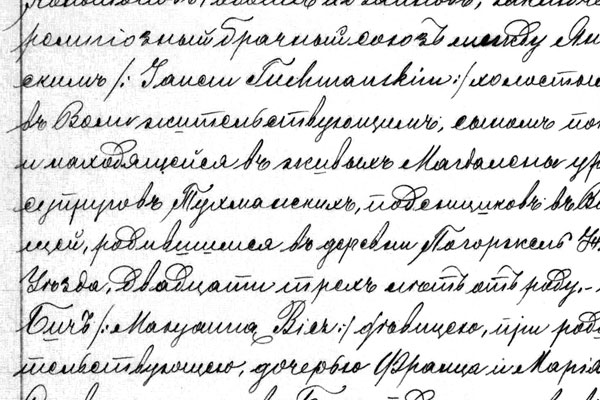 религіозный брачный союзъ между Ян
скимъ /: Janem Tuchmanskim :/ холостым
въ Воли жительствующимъ, сыномъ пок
и находящейся въ живыхъ Магдалены ур
супруговъ Тухманскихъ, поденщиковъ въ В
щей, родившимся въ деревни Погоржель
Уѣзда, двадцати трехъ лѣтъ отъ роду, -
Бичъ /: Maryanną Bicz :/ дѣвицею, при род
тельствующею, дочерью Франца и Маріа